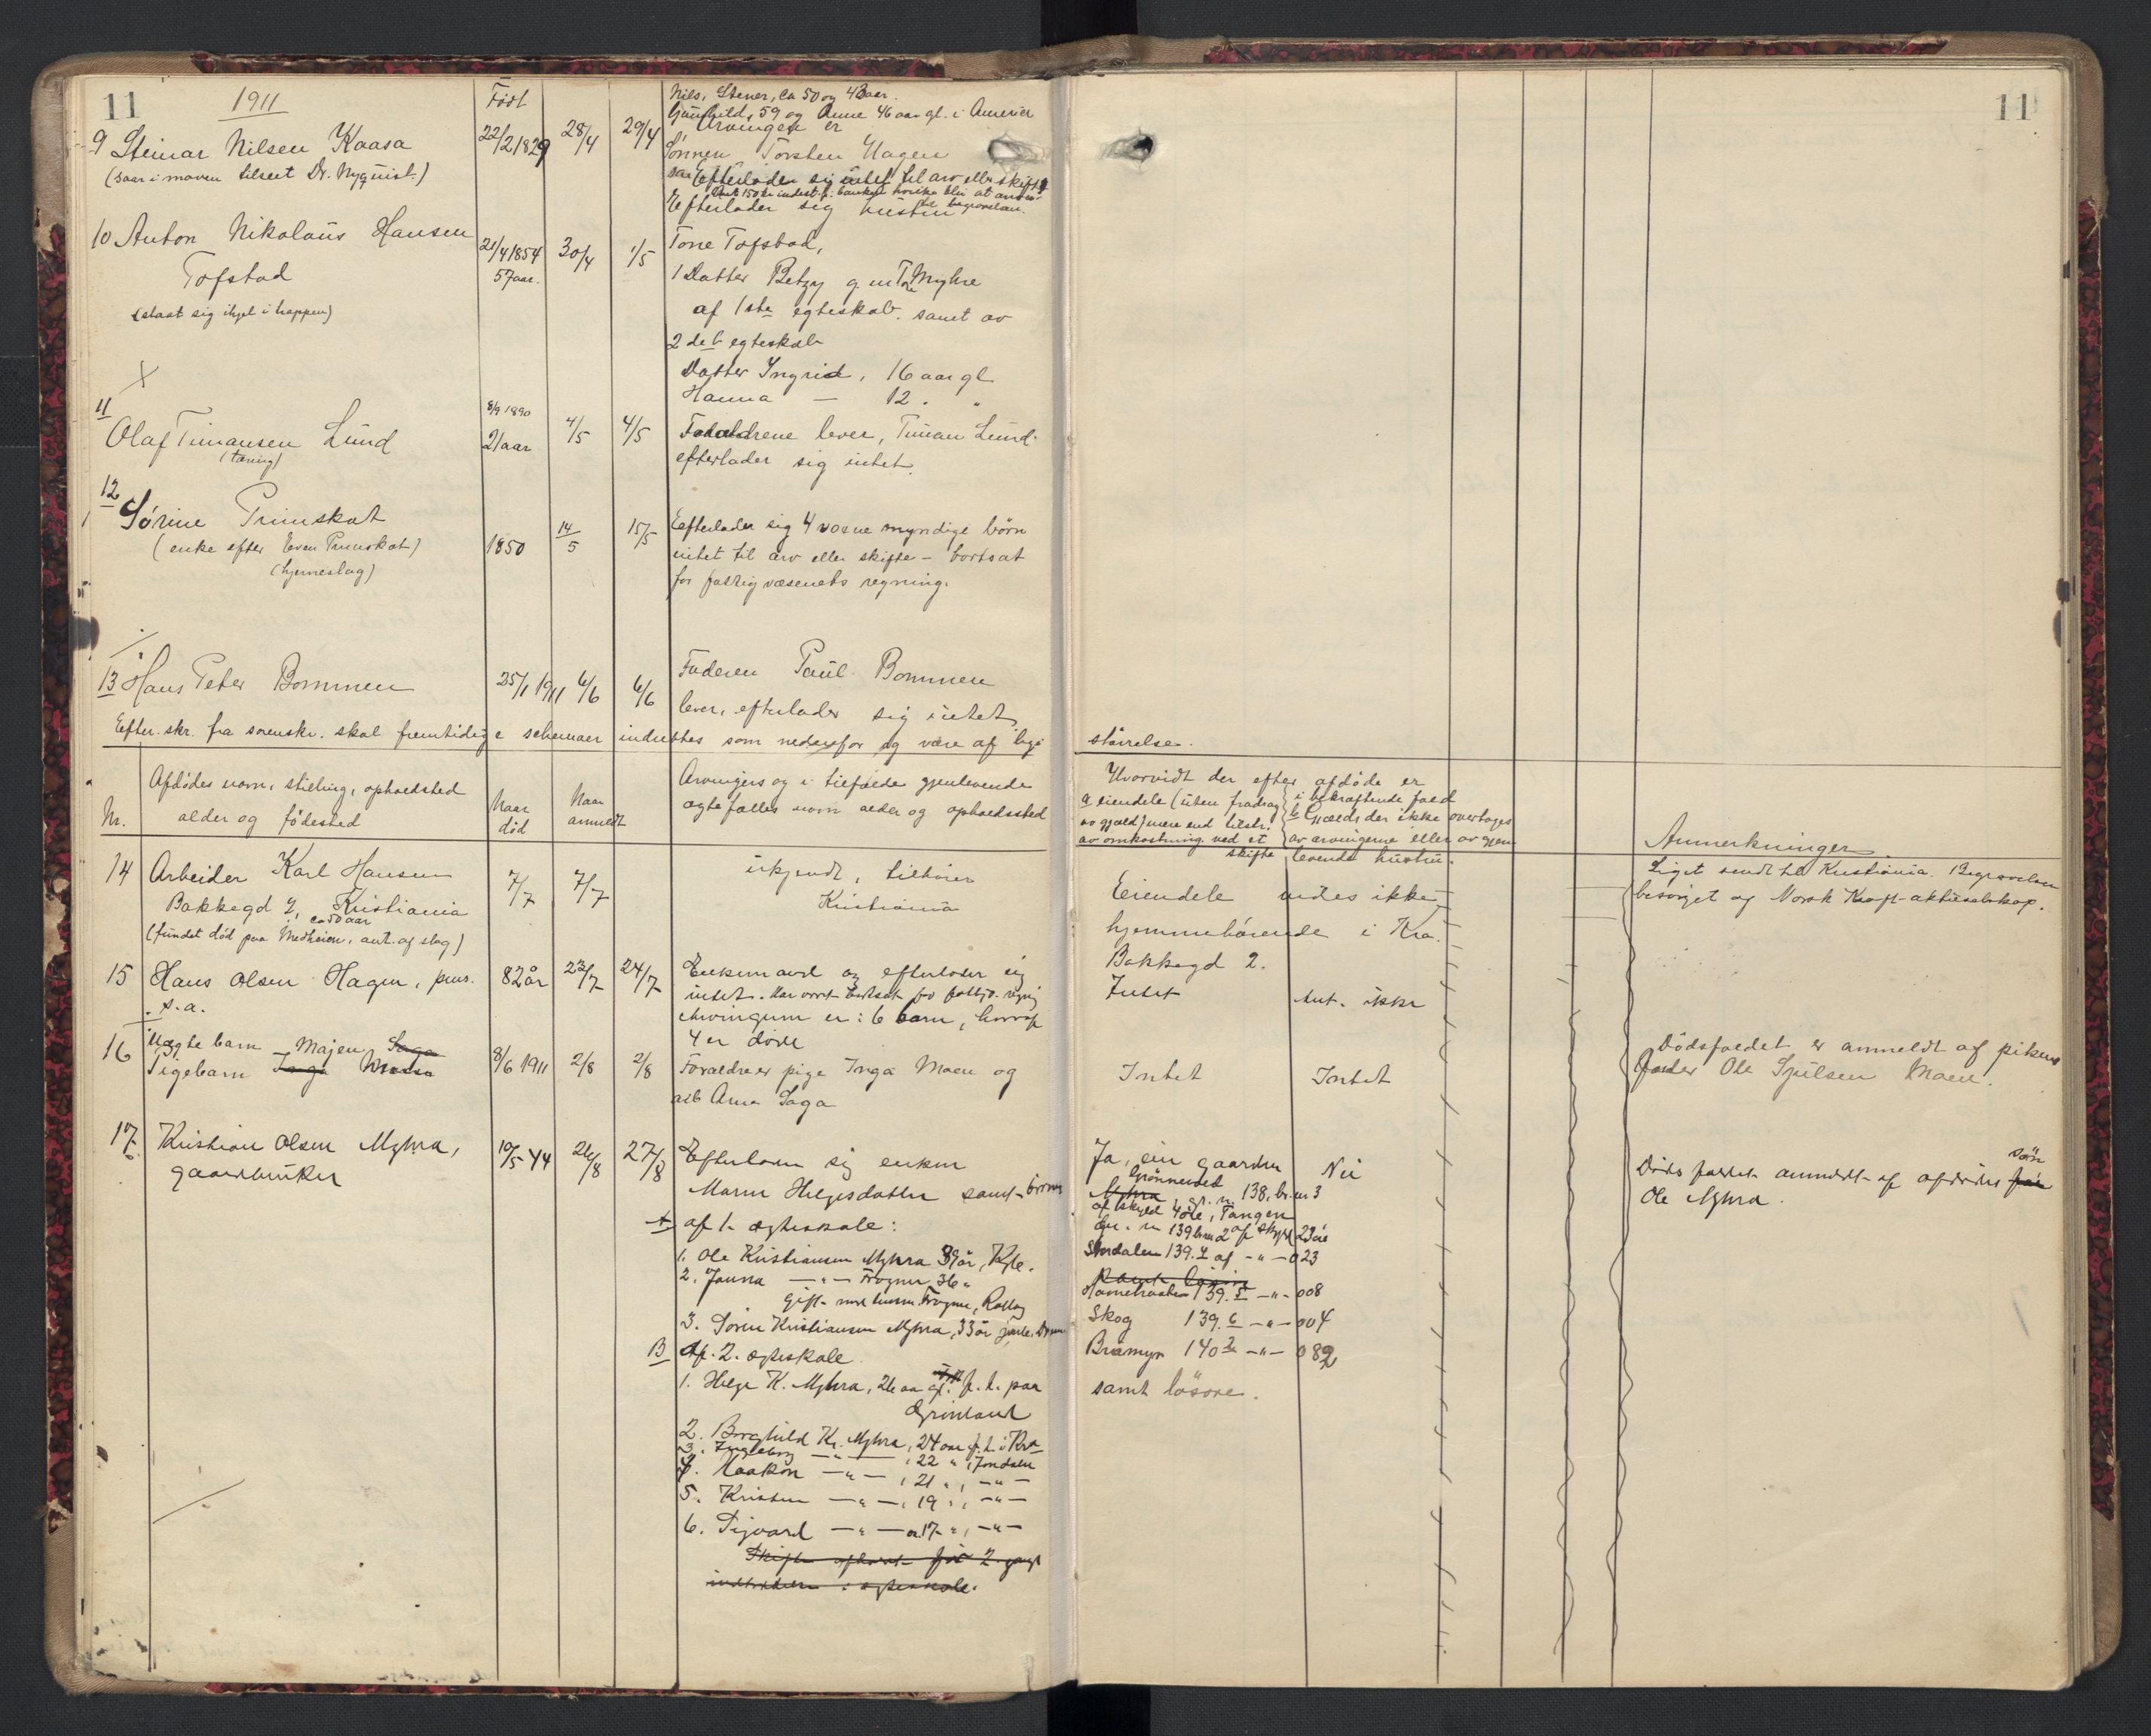 11
1911
Født
9 Steinar Nilsen Kaasa
(saar i maven tilseet Dr. Nyquist)
22/2 1829
28/4
29/4
Nils, Stener, ca 50 og 43 aar.
Gunhild, 59 og Anne 46 aar gl. i Amerika
Arvingen er
Sønnen Torsten Hagen
Efterlader sig intet til arv eller skifte
150 kr indest. i banken hvilke blir at anv.
til begravelsen.
10 Anton Nikolaus Hansen
Tofstad
(slaat sig ihjel i trappen)
21/4 1854
57 aar.
30/4
1/5
Efterlader sig hustru
Tone Tofstad,
1 Datter Betzy g. m. T. Myhre
af 1ste egteskab. samt av
2det egteskab
Datter Ingrid, 16 aar gl
Hanna — 12 . "
X
11
Olaf Timansen Lund
(tæring)
8/9 1890
21 aar
4/5
4/5
Forældrene lever, Timan Lund.
efterlader sig intet.
12
Sørine Primskot
(enke efter Even Primskot)
(hjerneslag)
1850
14/5
15/5
Efterlader sig 4 voxne myndige børn
intet til arv eller skifte – bortsat
for fattigvæsenets regning.
13 Hans Peter Bommen
25/1 1911
6/6
6/6
Faderen Paul Bommen
lever, efterlader sig intet.
Efter skr. fra sorenskr. skal fremtidige schemaer indrettes som nedenfor og være af lign
størrelse.
Nr.
Afdødes navn, stilling, opholdssted
alder og fødested
Naar
død
Naar
anmeldt
Arvingers og i tilfælde gjenlevende
ægtefælles navn alder og opholdssted
Hvorvidt der efter afdøde er
a eiendele (uten fradrag
av gjæld) mere end tilstr.
av omkostning. ved et
skifte
i bekræftende fald
b Gjælds der ikke overtages
av arvingerne eller av gjen
levende hustru.
Anmerkninger
14 Arbeider Karl Hansen
Bakkegd 2, Kristiania
ca 50 aar
(fundet død paa Medheien, ant. af slag)
7/7
7/7
ukjendt, tilhører
Kristiania
Eiendele vides ikke
hjemmehørende i Kra.
Bakkegd 2.
Liget sendt til Kristiania. Begravelsen
besørget af Norsk Kraft-aktieselskap.
15 Hans Olsen Hagen, pens.
s.a.
82 år
23/7
24/7
Enkemand og efterlader sig
intet. Har vært bortsat for fattigv. regnig
Arvingerne er: 6 barn, hvoraf
4 er døde
Intet
Ant. ikke
16 Uægte barn Majen Saga
Pigebarn Inga
8/6 1911
2/8
2/8
Forældre er pige Inga Moen og
arb Arne Saga
Intet
Intet
Dødsfaldet er anmeldt af pikens
fader Ole Sjulsen Moen.
17 Kristian Olsen Myhra,
gaardbruker
10/5 44
26/8
27/8
Efterlader sig enken
Maren Helgesdatter samt børnene
A af 1. ægteskab:
1. Ole Kristiansen Myhra 39 år, Kgbe.
2. Janna — " — Frogner 36 "
gift med Frogner, Rollag
3. Søren Kristiansen Myhra, 33 år
B Af. 2. ægteskab.
1. Helge K. Myhra, 26 aar gl. f. t. paa
Grinland
2. Borghild Kr. Myhra, 24 aar f. t. i Kra
3. Ingeborg — " — , 22 " , Jondalen
4. Haakon — " — , 21 " , — " —
5. Kristen — " — , 19 " , — " —
6. Sigvard — " — 17 " , — " —
Ja, eier gaarden
Grønneset
Myhra, gr. n. 138, br. nr 3
af skyld 4 øre, Tangen
gr. n 139 br nr 2 af skyld 23 øre
Stordalen 139.4 af — " — 0 23
139.5 — " — 008
Skog 139.6 — " — 004
Bramyr 140 2 — " — 082
samt løsøre.
Nei
Dødsfaldet anmeldt af afdødes
søn
Ole Myhra.
11